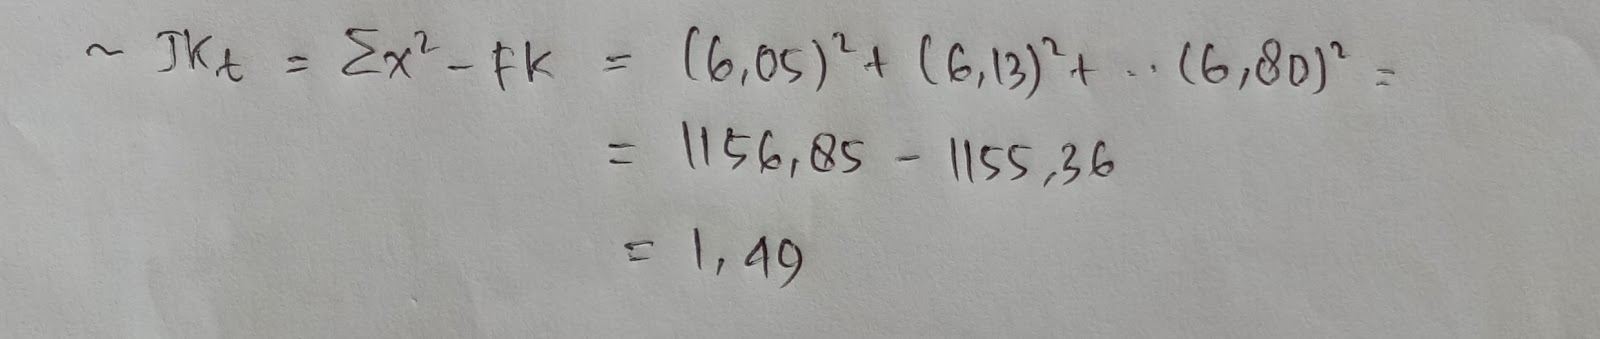 ~ JKt = Σx² - FK = (6,05)² + (6,13)² + .. (6,80)² =
= 1156,85 - 1155,36
= 1,49